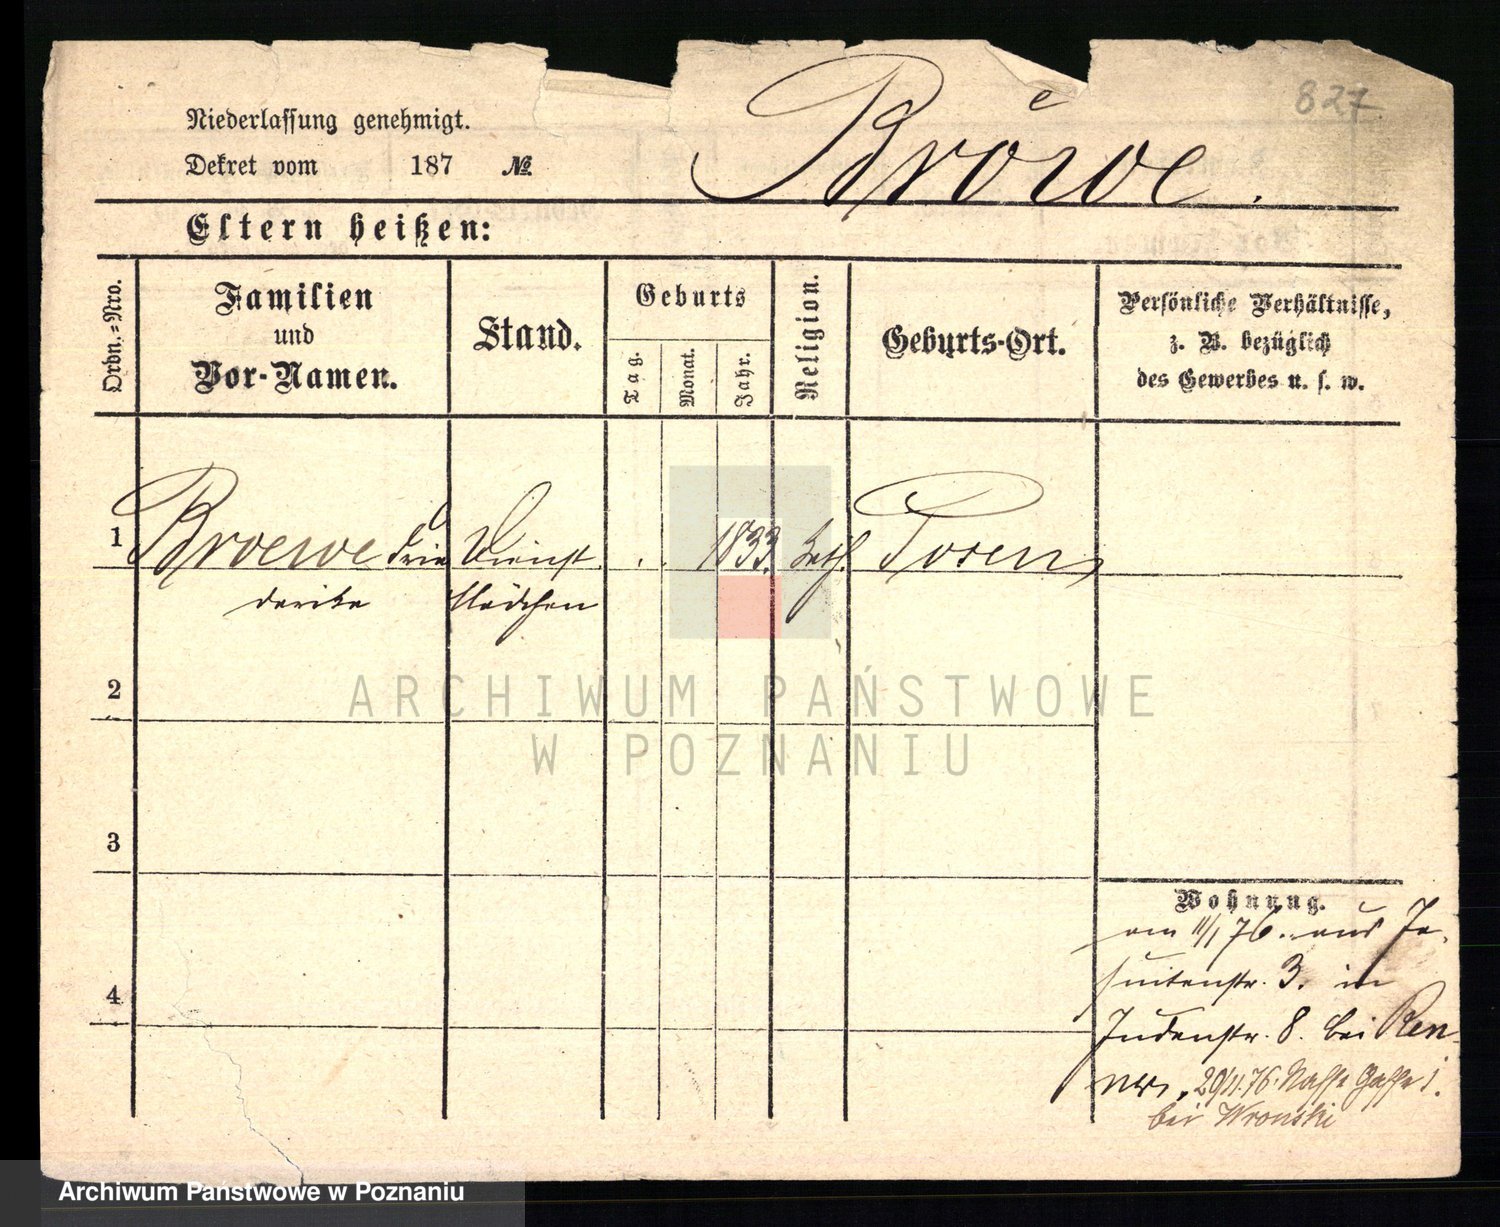 827
Niederlassung genehmigt.
Dekret vom 187 №
Bröwe.
e
Eltern heißen:
Ordn.-Nro.
Familien
und
Vor-Namen.
Stand.
Geburts
Tag.
Monat.
Jahr.
Religion.
Geburts-Ort.
Persönliche Verhältnisse,
z. B. bezüglich
des Gewerbes u. s. w.
1 Broewe Frie Dienst . . 1833. kath. Posen
derike Mädchen
2
3
4
Wohnung.
am 11/1 76. aus Je-
suitenstr. 3. in
Judenstr. 8. bei Ren-
ner, 29/11.76. Nasse Gasse 1.
bei Wronski
ARCHIWUM PAŃSTWOWE
W POZNANIU
Archiwum Państwowe w Poznaniu